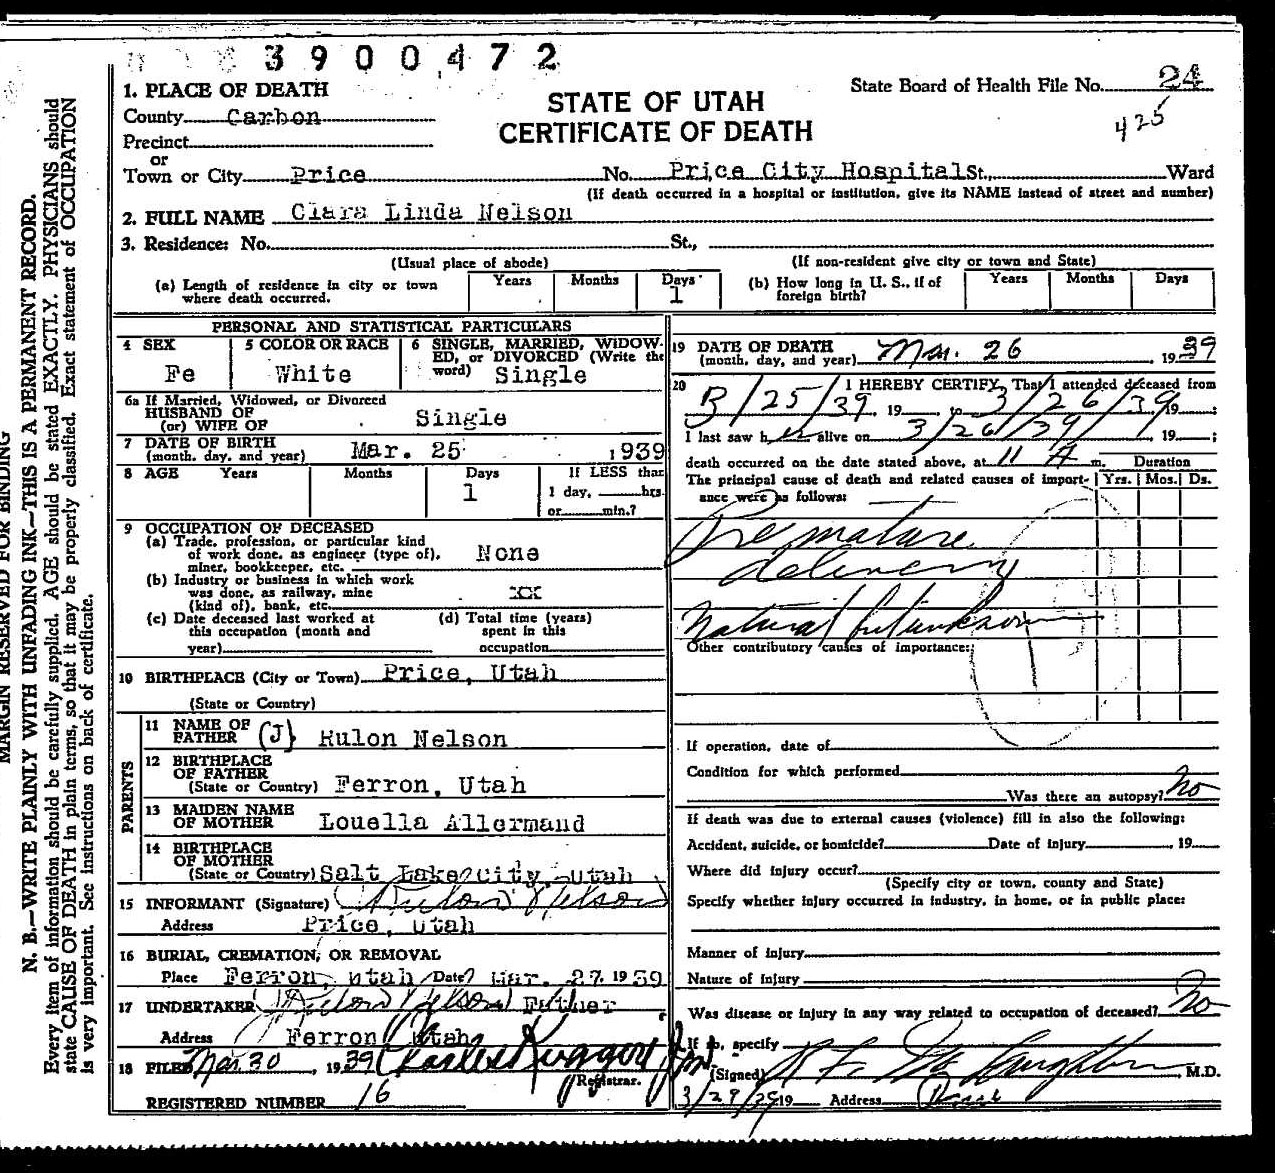 3900472
State Board of Health File No. 24
425
STATE OF UTAH
CERTIFICATE OF DEATH
1. PLACE OF DEATH
County Carbon
Precinct
or
Town or City Price No. Price City Hospital St., Ward
(If death occurred in a hospital or institution, give its NAME instead of street and number)
2. FULL NAME Clara Linda Nelson
3. Residence: No. St.,
(Usual place of abode) (If non-resident give city or town and State)
(a) Length of residence in city or town where death occurred. Years Months Days 1
(b) How long in U. S., if of foreign birth? Years Months Days
PERSONAL AND STATISTICAL PARTICULARS
4 SEX Fe
5 COLOR OR RACE White
6 SINGLE, MARRIED, WIDOWED, or DIVORCED (Write the word) Single
6a If Married, Widowed, or Divorced
HUSBAND OF
(or) WIFE OF Single
7 DATE OF BIRTH
(month, day, and year) Mar. 25 1939
8 AGE Years Months Days 1 If LESS than 1 day, hrs. or min.?
9 OCCUPATION OF DECEASED
(a) Trade, profession, or particular kind of work done, as engineer (type of), miner, bookkeeper, etc. None
(b) Industry or business in which work was done, as railway, mine (kind of), bank, etc. XX
(c) Date deceased last worked at this occupation (month and year)
(d) Total time (years) spent in this occupation
10 BIRTHPLACE (City or Town) Price, Utah
(State or Country)
PARENTS
11 NAME OF FATHER (J) Rulon Nelson
12 BIRTHPLACE OF FATHER
(State or Country) Ferron, Utah
13 MAIDEN NAME OF MOTHER Louella Allermand
14 BIRTHPLACE OF MOTHER
(State or Country) Salt Lake City, Utah
15 INFORMANT (Signature) Rulon Nelson
Address Price, Utah
16 BURIAL, CREMATION, OR REMOVAL
Place Ferron, Utah Date Mar. 27, 1939
17 UNDERTAKER Rulon Nelson Father
Address Ferron Utah
18 FILED Mar 30, 1939 Charles Ruggeri Jr.
Registrar.
REGISTERED NUMBER 16
19 DATE OF DEATH
(month, day, and year) Mar. 26, 1939
20 I HEREBY CERTIFY, That I attended deceased from
3/25/39, 19 to 3/26/39 19 ;
I last saw h er alive on 3/26/39, 19 ;
death occurred on the date stated above, at 11 A m.
Duration
The principal cause of death and related causes of importance were as follows: Yrs. Mos. Ds.
Premature
delivery
Natural but unknown
Other contributory causes of importance:
If operation, date of
Condition for which performed
Was there an autopsy? No
If death was due to external causes (violence) fill in also the following:
Accident, suicide, or homicide? Date of injury , 19
Where did injury occur?
(Specify city or town, county and State)
Specify whether injury occurred in industry, in home, or in public place:
Manner of injury
Nature of injury
Was disease or injury in any way related to occupation of deceased? No
If so, specify
(Signed) R F McLaughlin M.D.
3/29/39 19 Address Price
MARGIN RESERVED FOR BINDING
N. B.—WRITE PLAINLY WITH UNFADING INK—THIS IS A PERMANENT RECORD.
Every item of information should be carefully supplied. AGE should be stated EXACTLY. PHYSICIANS should
state CAUSE OF DEATH in plain terms, so that it may be properly classified. Exact statement of OCCUPATION
is very important. See instructions on back of certificate.